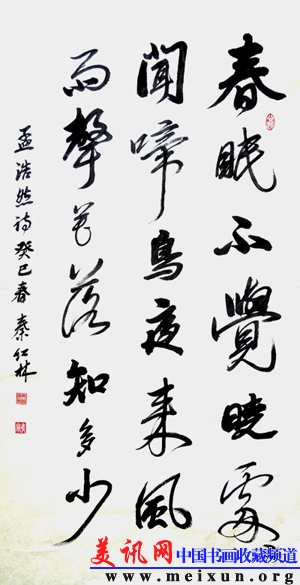 春眠不覺曉處
聞啼鳥夜来風
雨聲花落知多少
孟浩然诗癸巳春秦红林
美讯网 中国书画收藏频道
www.meixun.org